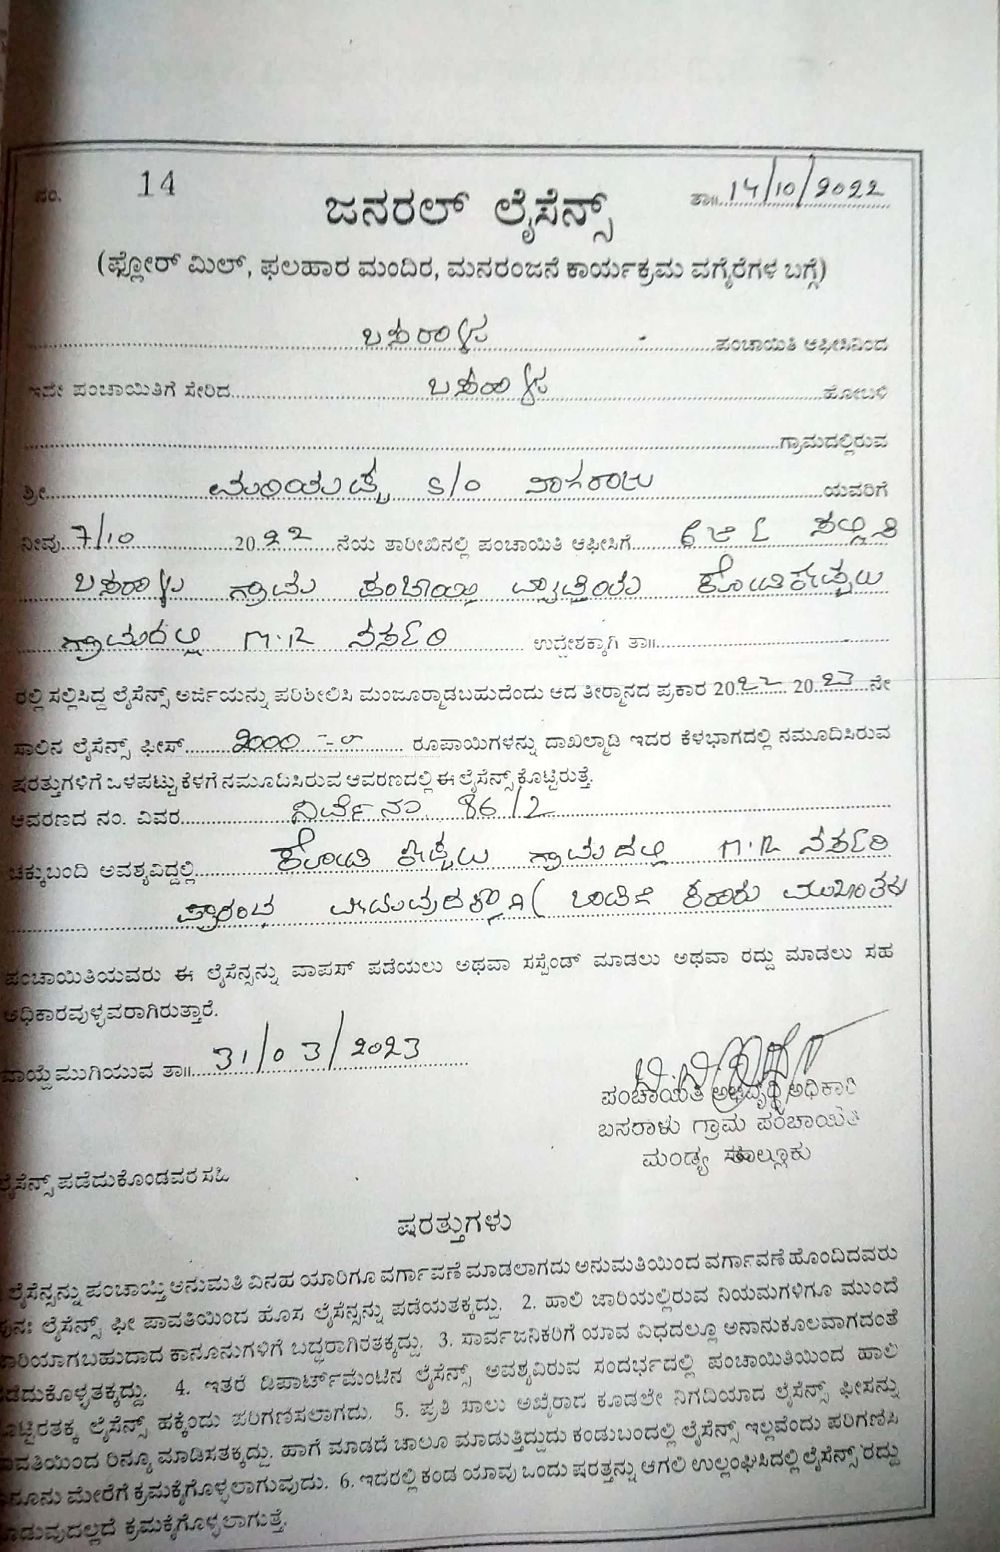 ನಂ. 14
ತಾ॥ 14/10/2022
ಜನರಲ್ ಲೈಸೆನ್ಸ್
(ಫ್ಲೋರ್ ಮಿಲ್, ಫಲಹಾರ ಮಂದಿರ, ಮನರಂಜನೆ ಕಾರ್ಯಕ್ರಮ ವಗೈರೆಗಳ ಬಗ್ಗೆ)
ಬಸರಾಳು ಪಂಚಾಯಿತಿ ಆಫೀಸಿನಿಂದ
ಇದೇ ಪಂಚಾಯಿತಿಗೆ ಸೇರಿದ ಬಸರಾಳು ಹೋಬಳಿ
ಗ್ರಾಮದಲ್ಲಿರುವ
ಶ್ರೀ ಮರಿಯಪ್ಪ S/O ನಾಗರಾಜು ಯವರಿಗೆ
ನೀವು 7/10 2022 ನೆಯ ತಾರೀಖಿನಲ್ಲಿ ಪಂಚಾಯಿತಿ ಆಫೀಸಿಗೆ ಅರ್ಜಿ ಸಲ್ಲಿಸಿ
ಬಸರಾಳು ಗ್ರಾಮ ಪಂಚಾಯಿತಿ ವ್ಯಾಪ್ತಿಯ
ಗ್ರಾಮದಲ್ಲಿ M.R ನರ್ಸರಿ ಉದ್ದೇಶಕ್ಕಾಗಿ ತಾ॥
ರಲ್ಲಿ ಸಲ್ಲಿಸಿದ್ದ ಲೈಸೆನ್ಸ್ ಅರ್ಜಿಯನ್ನು ಪರಿಶೀಲಿಸಿ ಮಂಜೂರ್ಮಾಡಬಹುದೆಂದು ಆದ ತೀರ್ಮಾನದ ಪ್ರಕಾರ 2022 2023 ನೇ
ಸಾಲಿನ ಲೈಸೆನ್ಸ್ ಫೀಸ್ 2000 ರೂಪಾಯಿಗಳನ್ನು ದಾಖಲ್ಮಾಡಿ ಇದರ ಕೆಳಭಾಗದಲ್ಲಿ ನಮೂದಿಸಿರುವ
ಷರತ್ತುಗಳಿಗೆ ಒಳಪಟ್ಟು ಕೆಳಗೆ ನಮೂದಿಸಿರುವ ಆವರಣದಲ್ಲಿ ಈ ಲೈಸೆನ್ಸ್ ಕೊಟ್ಟಿರುತ್ತೆ.
ಆವರಣದ ನಂ. ವಿವರ ಸರ್ವೆ ನಂ. 86/2
ಚಕ್ಕುಬಂದಿ ಅವಶ್ಯವಿದ್ದಲ್ಲಿ ಗ್ರಾಮದಲ್ಲಿ M.R ನರ್ಸರಿ
ಪ್ರಾರಂಭ ಮಾಡುವುದಕ್ಕಾಗಿ ( ಬಾಡಿಗೆ ಕರಾರು ಮುಖಾಂತರ
ಪಂಚಾಯಿತಿಯವರು ಈ ಲೈಸೆನ್ಸನ್ನು ವಾಪಸ್ ಪಡೆಯಲು ಅಥವಾ ಸಸ್ಪೆಂಡ್ ಮಾಡಲು ಅಥವಾ ರದ್ದು ಮಾಡಲು ಸಹ
ಅಧಿಕಾರವುಳ್ಳವರಾಗಿರುತ್ತಾರೆ.
ವಾಯ್ದೆ ಮುಗಿಯುವ ತಾ॥ 31/03/2023
ಪಂಚಾಯಿತಿ ಅಭಿವೃದ್ಧಿ ಅಧಿಕಾರಿ
ಬಸರಾಳು ಗ್ರಾಮ ಪಂಚಾಯಿತಿ
ಮಂಡ್ಯ ತಾಲ್ಲೂಕು
ಲೈಸೆನ್ಸ್ ಪಡೆದುಕೊಂಡವರ ಸಹಿ
ಷರತ್ತುಗಳು
ಲೈಸೆನ್ಸನ್ನು ಪಂಚಾಯ್ತಿ ಅನುಮತಿ ವಿನಹ ಯಾರಿಗೂ ವರ್ಗಾವಣೆ ಮಾಡಲಾಗದು ಅನುಮತಿಯಿಂದ ವರ್ಗಾವಣೆ ಹೊಂದಿದವರು
ಪುನಃ ಲೈಸೆನ್ಸ್ ಫೀ ಪಾವತಿಯಿಂದ ಹೊಸ ಲೈಸೆನ್ಸನ್ನು ಪಡೆಯತಕ್ಕದ್ದು. 2. ಹಾಲಿ ಜಾರಿಯಲ್ಲಿರುವ ನಿಯಮಗಳಿಗೂ ಮುಂದೆ
ಜಾರಿಯಾಗಬಹುದಾದ ಕಾನೂನುಗಳಿಗೆ ಬದ್ಧರಾಗಿರತಕ್ಕದ್ದು. 3. ಸಾರ್ವಜನಿಕರಿಗೆ ಯಾವ ವಿಧದಲ್ಲೂ ಅನಾನುಕೂಲವಾಗದಂತೆ
ನಡೆದುಕೊಳ್ಳತಕ್ಕದ್ದು. 4. ಇತರೆ ಡಿಪಾರ್ಟ್‌ಮೆಂಟಿನ ಲೈಸೆನ್ಸ್ ಅವಶ್ಯವಿರುವ ಸಂದರ್ಭದಲ್ಲಿ ಪಂಚಾಯಿತಿಯಿಂದ ಹಾಲಿ
ಕೊಟ್ಟಿರತಕ್ಕ ಲೈಸೆನ್ಸ್ ಹಕ್ಕೆಂದು ಪರಿಗಣಿಸಲಾಗದು. 5. ಪ್ರತಿ ಸಾಲು ಅಖೈರಾದ ಕೂಡಲೇ ನಿಗದಿಯಾದ ಲೈಸೆನ್ಸ್ ಫೀಸನ್ನು
ಪಾವತಿಯಿಂದ ರಿನ್ಯೂ ಮಾಡಿಸತಕ್ಕದ್ದು. ಹಾಗೆ ಮಾಡದೆ ಚಾಲೂ ಮಾಡುತ್ತಿದ್ದುದು ಕಂಡುಬಂದಲ್ಲಿ ಲೈಸೆನ್ಸ್ ಇಲ್ಲವೆಂದು ಪರಿಗಣಿಸಿ
ಕಾನೂನು ಮೇರೆಗೆ ಕ್ರಮಕೈಗೊಳ್ಳಲಾಗುವುದು. 6. ಇದರಲ್ಲಿ ಕಂಡ ಯಾವು ಒಂದು ಷರತ್ತನ್ನು ಆಗಲಿ ಉಲ್ಲಂಘಿಸಿದಲ್ಲಿ ಲೈಸೆನ್ಸ್ ರದ್ದು
ಮಾಡುವುದಲ್ಲದೆ ಕ್ರಮಕೈಗೊಳ್ಳಲಾಗುತ್ತೆ.